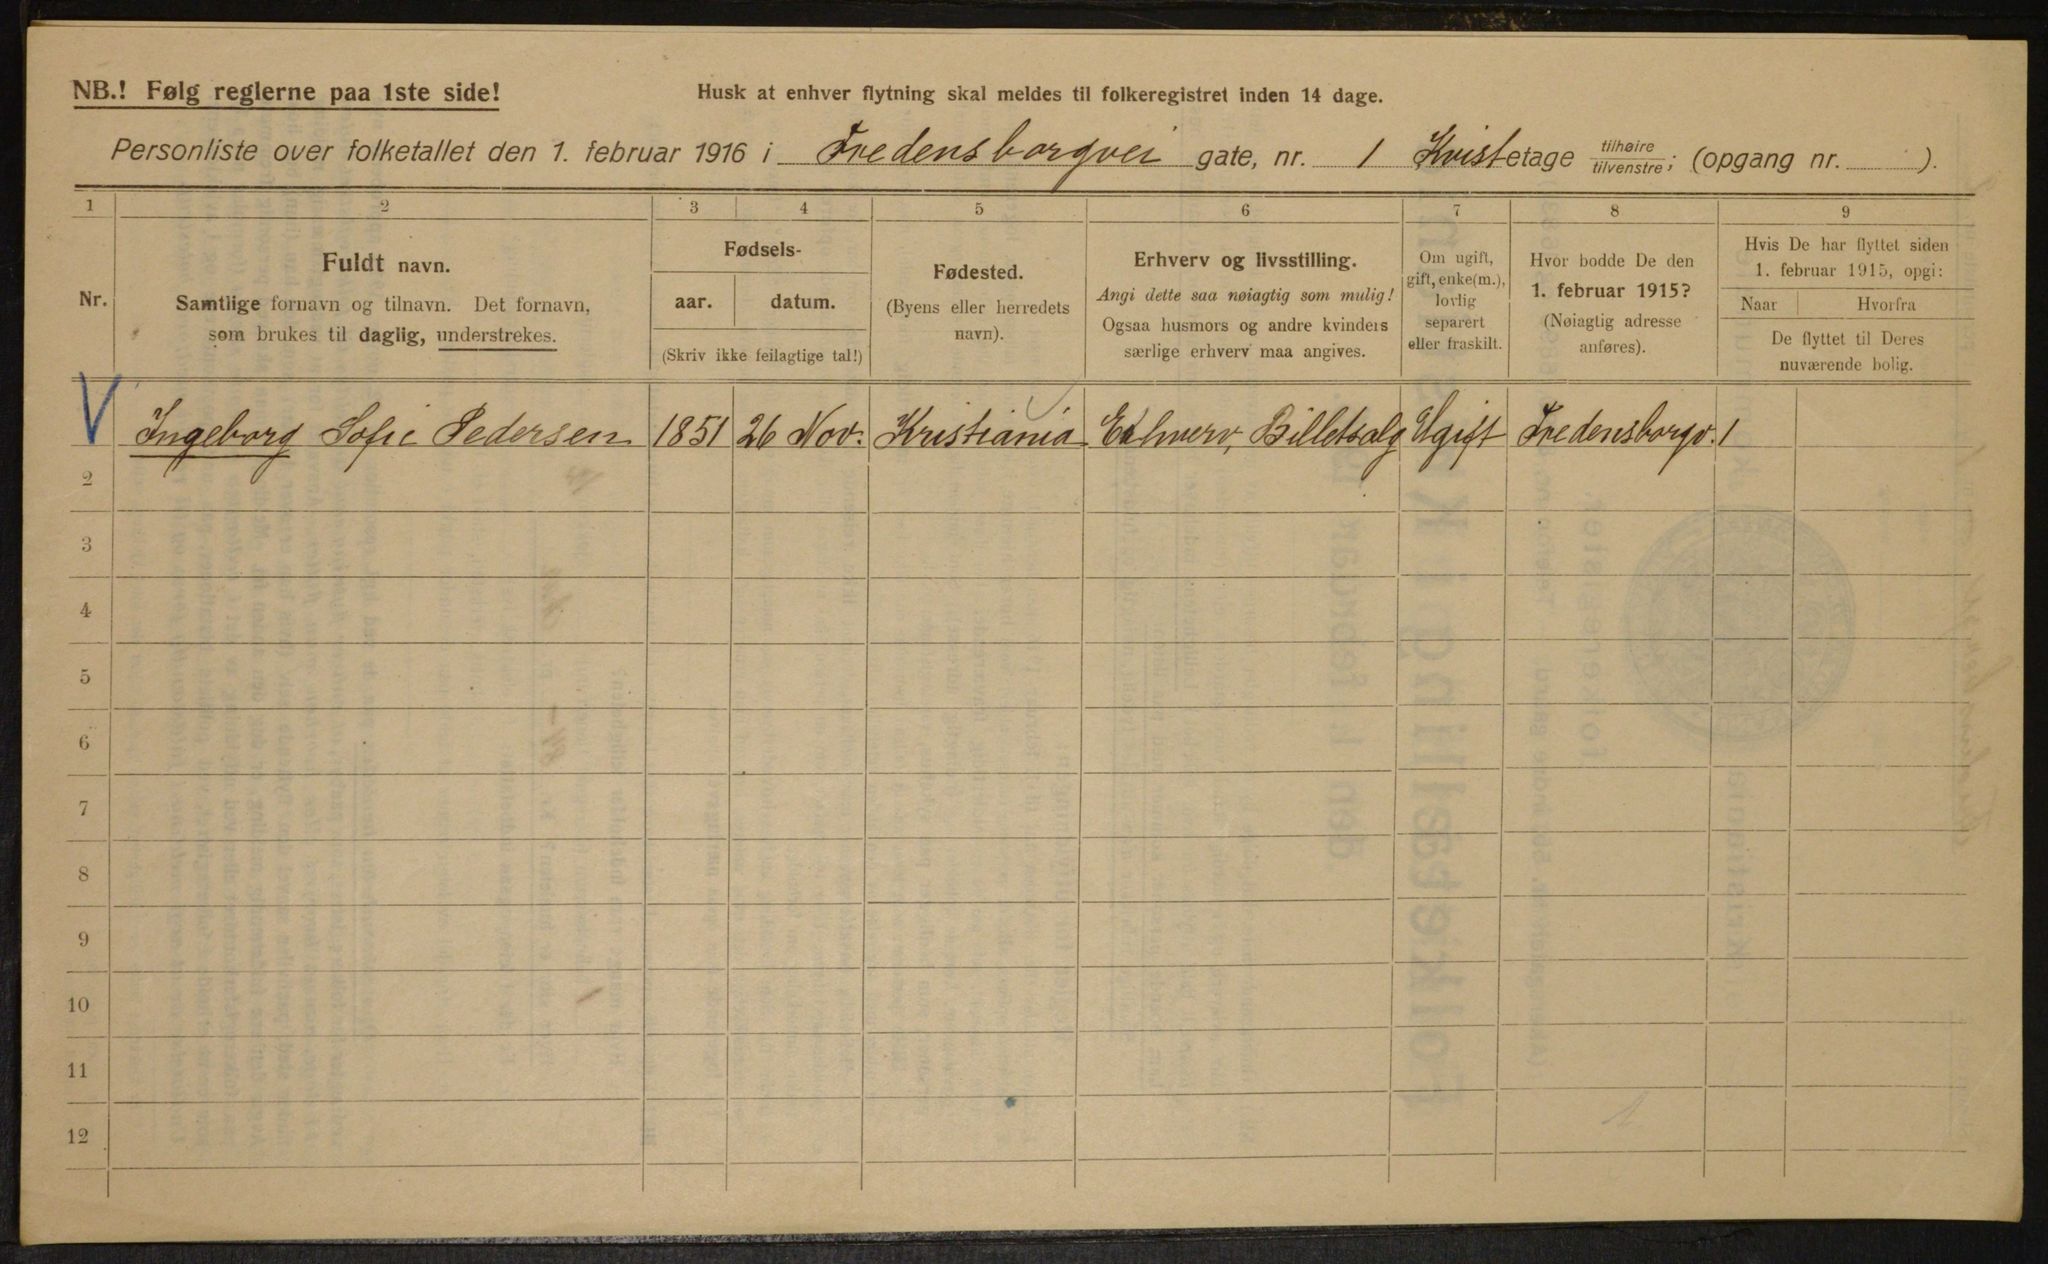 NB.! Følg reglerne paa 1ste side!
Husk at enhver flytning skal meldes til folkeregistret inden 14 dage.
Personliste over folketallet den 1. februar 1916 i Fredensborgvei gate, nr. 1 Kvistetage tilhøire/tilvenstre; (opgang nr. ).
1 2 3 4 5 6 7 8 9
Nr.
Fuldt navn.
Samtlige fornavn og tilnavn. Det fornavn,
som brukes til daglig, understrekes.
Fødsels-
aar. datum.
(Skriv ikke feilagtige tal!)
Fødested.
(Byens eller herredets
navn).
Erhverv og livsstilling.
Angi dette saa nøiagtig som mulig!
Ogsaa husmors og andre kvinders
særlige erhverv maa angives.
Om ugift,
gift, enke(m.),
lovlig
separert
eller fraskilt.
Hvor bodde De den
1. februar 1915?
(Nøiagtig adresse
anføres).
Hvis De har flyttet siden
1. februar 1915, opgi:
Naar Hvorfra
De flyttet til Deres
nuværende bolig.
Ingeborg Sofie Pedersen 1851 26 Nov. Kristiania Erhverv, Billetsalg Ugift Fredensborgv. 1
2
3
4
5
6
7
8
9
10
11
12